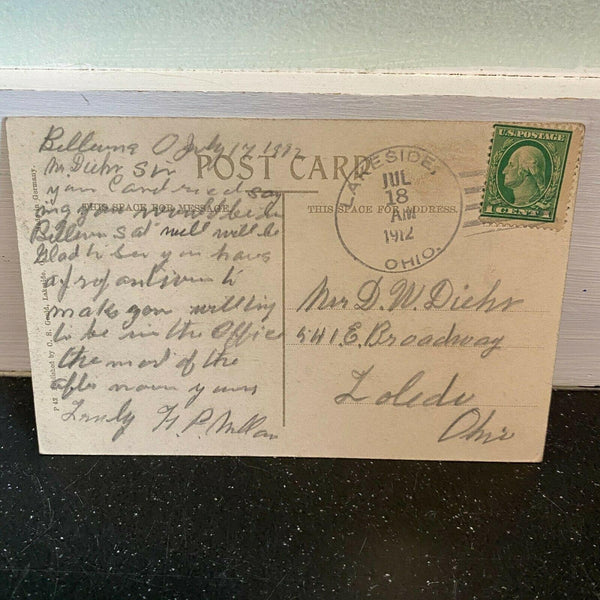 Bellevue O July 17 1912
Mr Diehr Sir
your Card recd say
ing you would be in
Bellevue Sat well will be
Glad to see you have
to
make you will try
to be in the Office
the most of the
after noon yours
Truly
POST CARD
THIS SPACE FOR MESSAGE
THIS SPACE FOR ADDRESS.
LAKESIDE,
JUL
18
AM
1912
OHIO.
U.S. POSTAGE
1 CENT 1
Mr D. W. Diehr
541 E. Broadway
Toledo
Ohio
Germany.